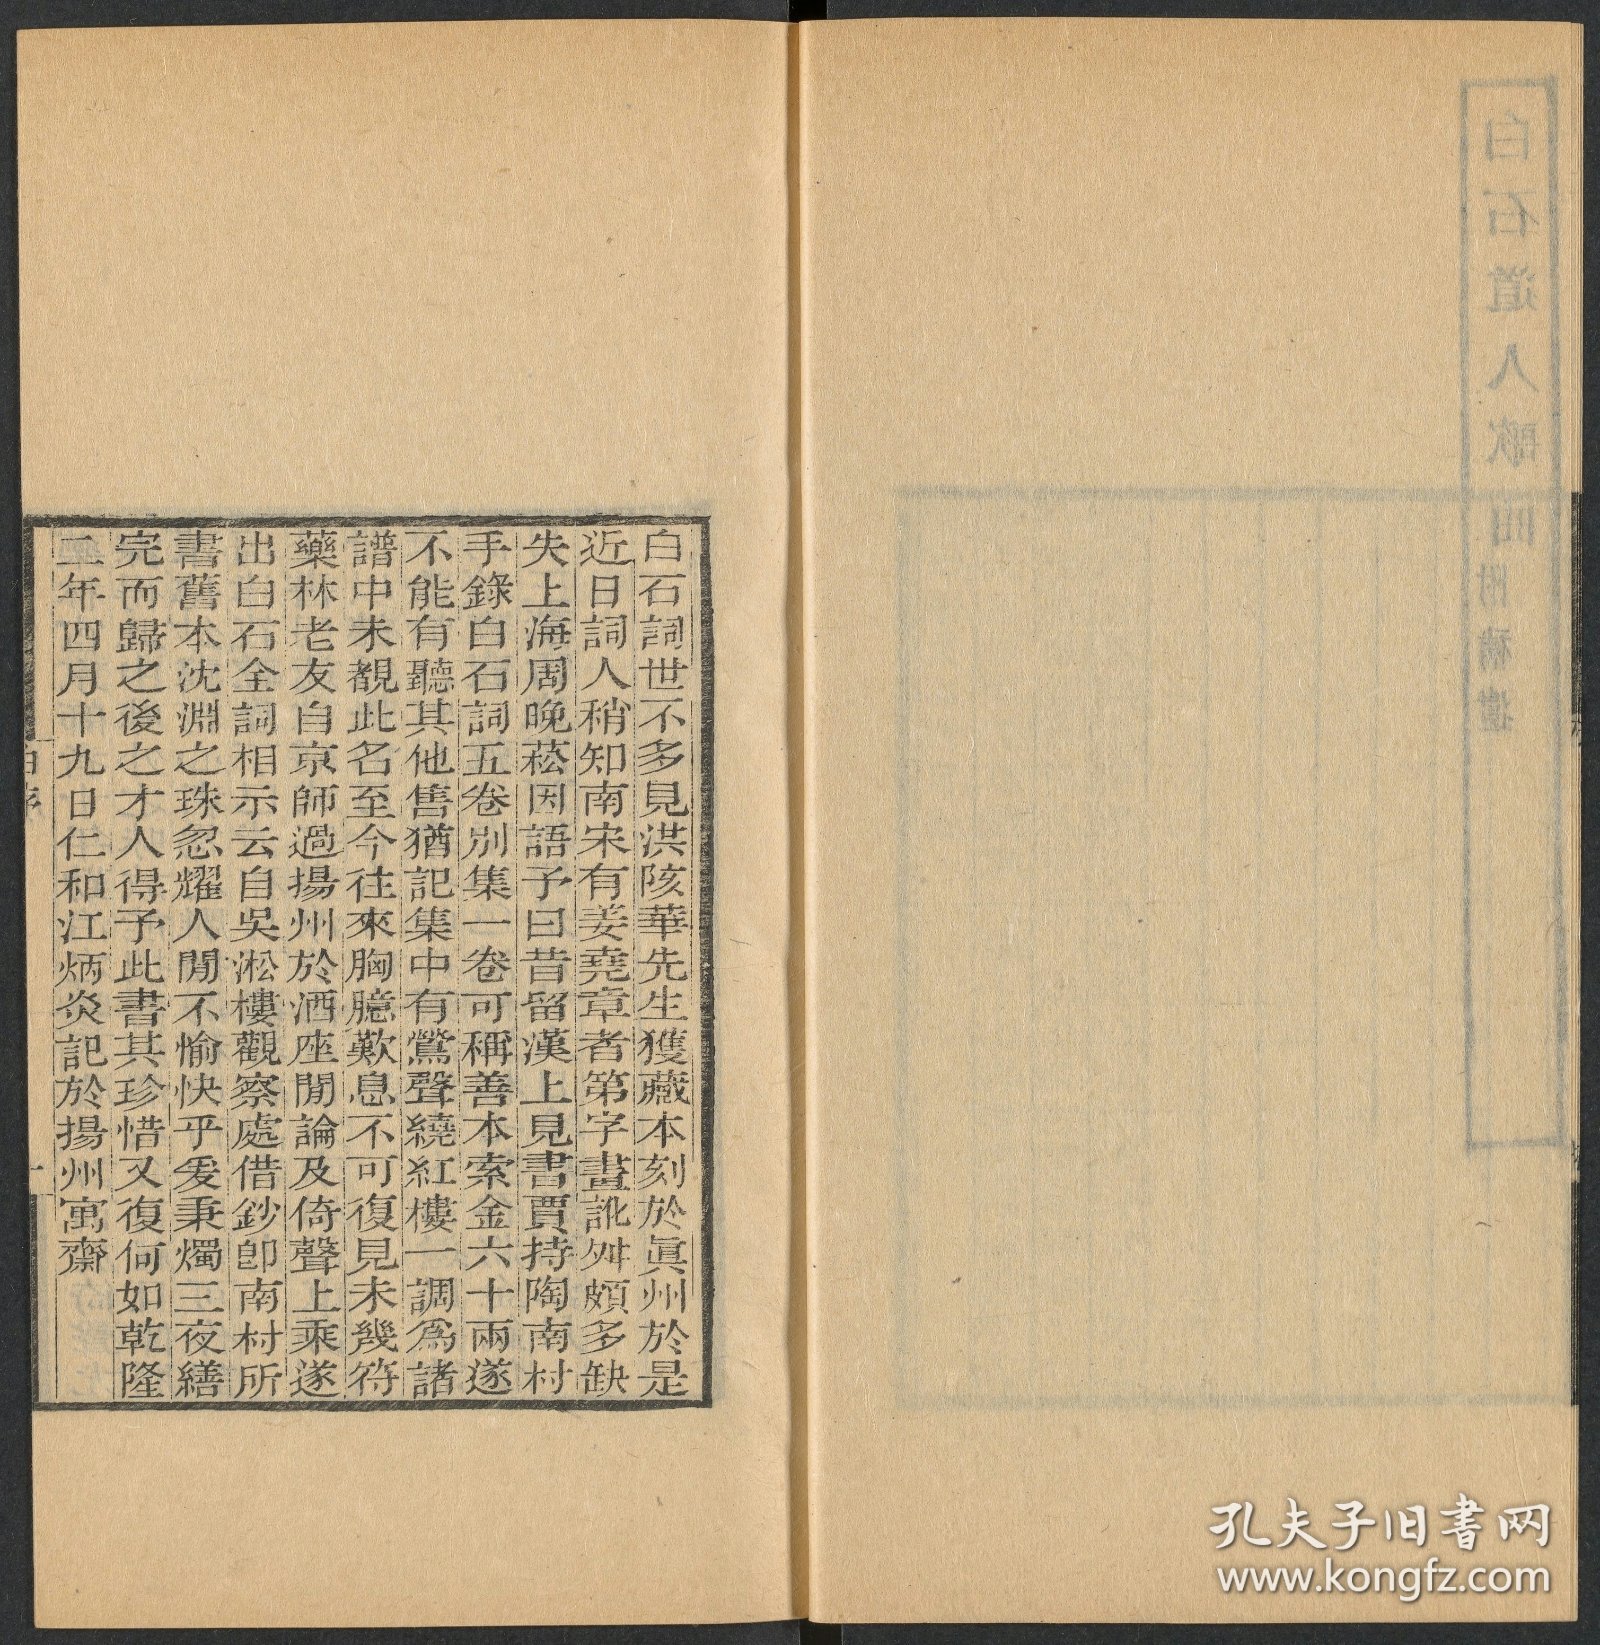 白石詞世不多見洪陔華先生獲藏本刻於眞州於是
近日詞人稍知南宋有姜堯章者第字畫訛舛頗多缺
失上海周晚菘因語予曰昔留漢上見書賈持陶南村
手錄白石詞五卷別集一卷可稱善本索金六十兩遂
不能有聽其他售猶記集中有鶯聲繞紅樓一調爲諸
譜中未覩此名至今往來胸臆歎息不可復見未幾符
藥林老友自京師過揚州於酒座閒論及倚聲上乘遂
出白石全詞相示云自吳淞樓觀察處借鈔卽南村所
書舊本沈淵之珠忽耀人閒不愉快乎爰秉燭三夜繕
完而歸之後之才人得予此書其珍惜又復何如乾隆
二年四月十九日仁和江炳炎記於揚州寓齋
白石道人歌曲附補遺
孔夫子旧书网
www.kongfz.com